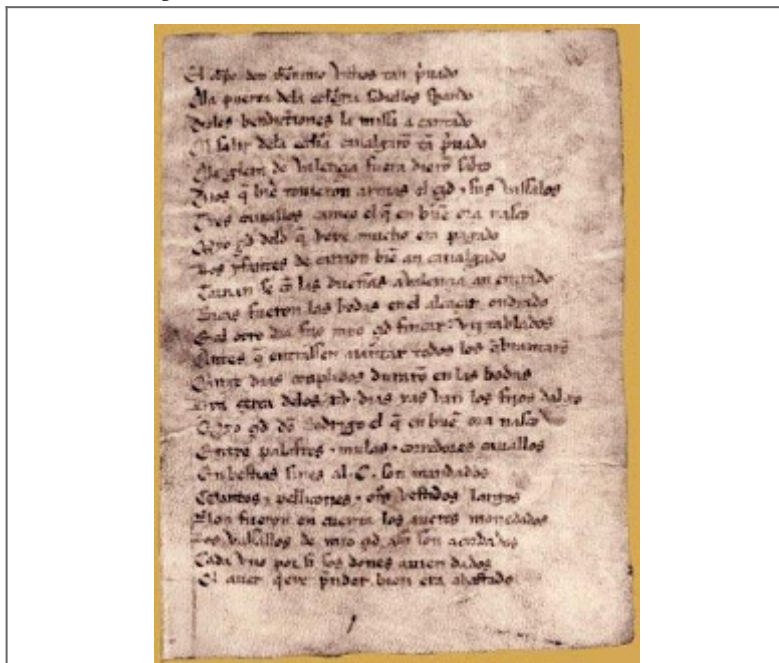 El obpo don iheronimo vinos tan p̃uado
Ala puerta dela eclegia sediellos sperando
Dioles bendictiones la missa a cantado
Al salir dela ecl̃ia caualgarõ tã p̃uado
Ala glera de valençia fuera dierõ salto
Dios q̃ biẽ touieron armas el çid & sus vassalos
Tres cauallos cameo el q̃ en buẽ ora nasco
Myo çid delo q̃ veye mucho era pagado
Los yfantes de carrion biẽ an caualgado
Tornan se cõ las dueñas a valençia an entrado
Ricas fueron las bodas en el alcaçar ondrado
E al otro dia fizo myo çid fincar .vij. tablados
Antes q̃ entrassen a iantar todos los q̃brantarõ
Quinze dias conplidos durarõ en las bodas
çerca delos .xv. dias yas van los fijos dalgo
Myo çid dõ Rodrigo el q̃ en buẽ ora nasco
Entre palafres & mulas & corredores cauallos
En bestias sines al .C. son mandados
Mantos & pelliçones & vestidos largos
Non fueron en cuenta los aueres monedados
Los vassallos de myo çid assi son acordados
Cada vno por si sos dones auien dados
auer bien era abastado